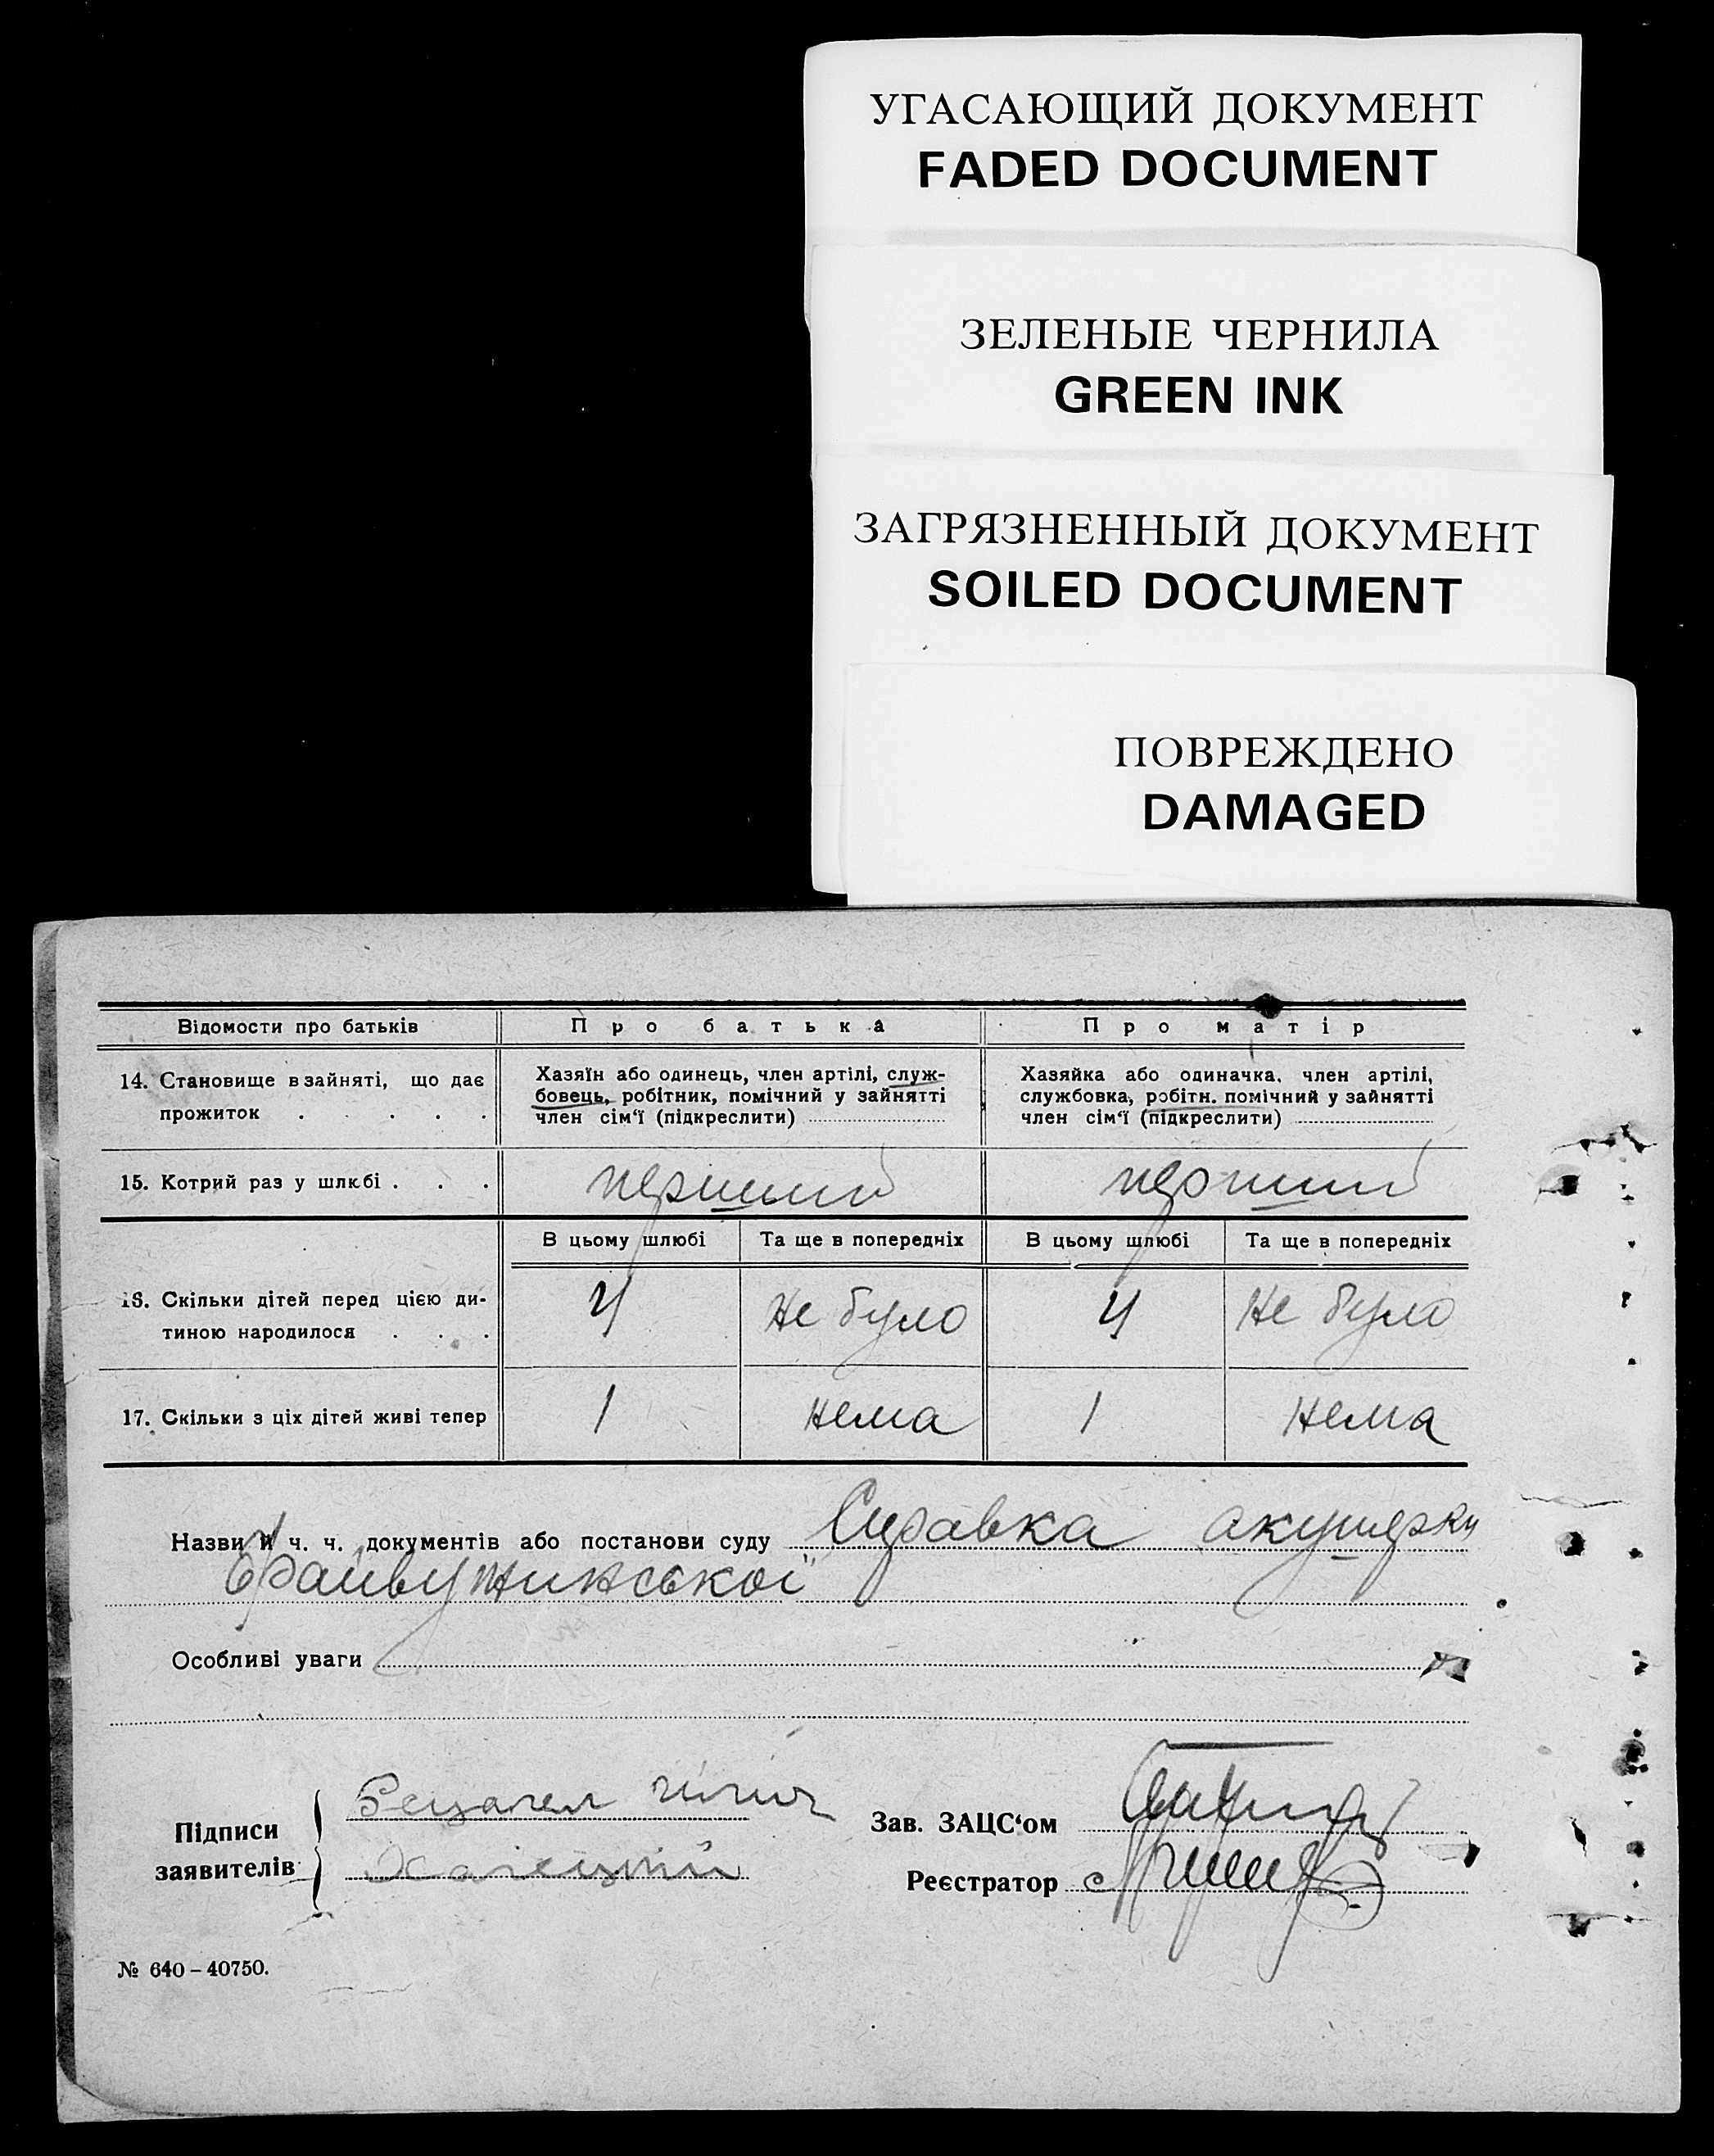 УГАСАЮЩИЙ ДОКУМЕНТ
FADED DOCUMENT
ЗЕЛЕНЫЕ ЧЕРНИЛА
GREEN INK
ЗАГРЯЗНЕННЫЙ ДОКУМЕНТ
SOILED DOCUMENT
ПОВРЕЖДЕНО
DAMAGED
Відомости про батьків Про батька Про матір
14. Становище в зайняті, що дає прожиток . . . . .
Хазяїн або одинець, член артілі, служ-
бовець, робітник, помічний у зайнятті
член сім'ї (підкреслити)
Хазяйка або одиначка, член артілі,
службовка, робітн. помічний у зайнятті
член сім'ї (підкреслити)
15. Котрий раз у шлюбі . . . перший перший
В цьому шлюбі Та ще в попередніх В цьому шлюбі Та ще в попередніх
16. Скільки дітей перед цією ди-
тиною народилося . . . 4 не було 4 не було
17. Скільки з ціх дітей живі тепер 1 нема 1 нема
Назви й ч. ч. документів або постанови суду Справка акушерки
Особливі уваги
Підписи
заявителів
Зав. ЗАЦС‘ом
Реєстратор
№ 640-40750.